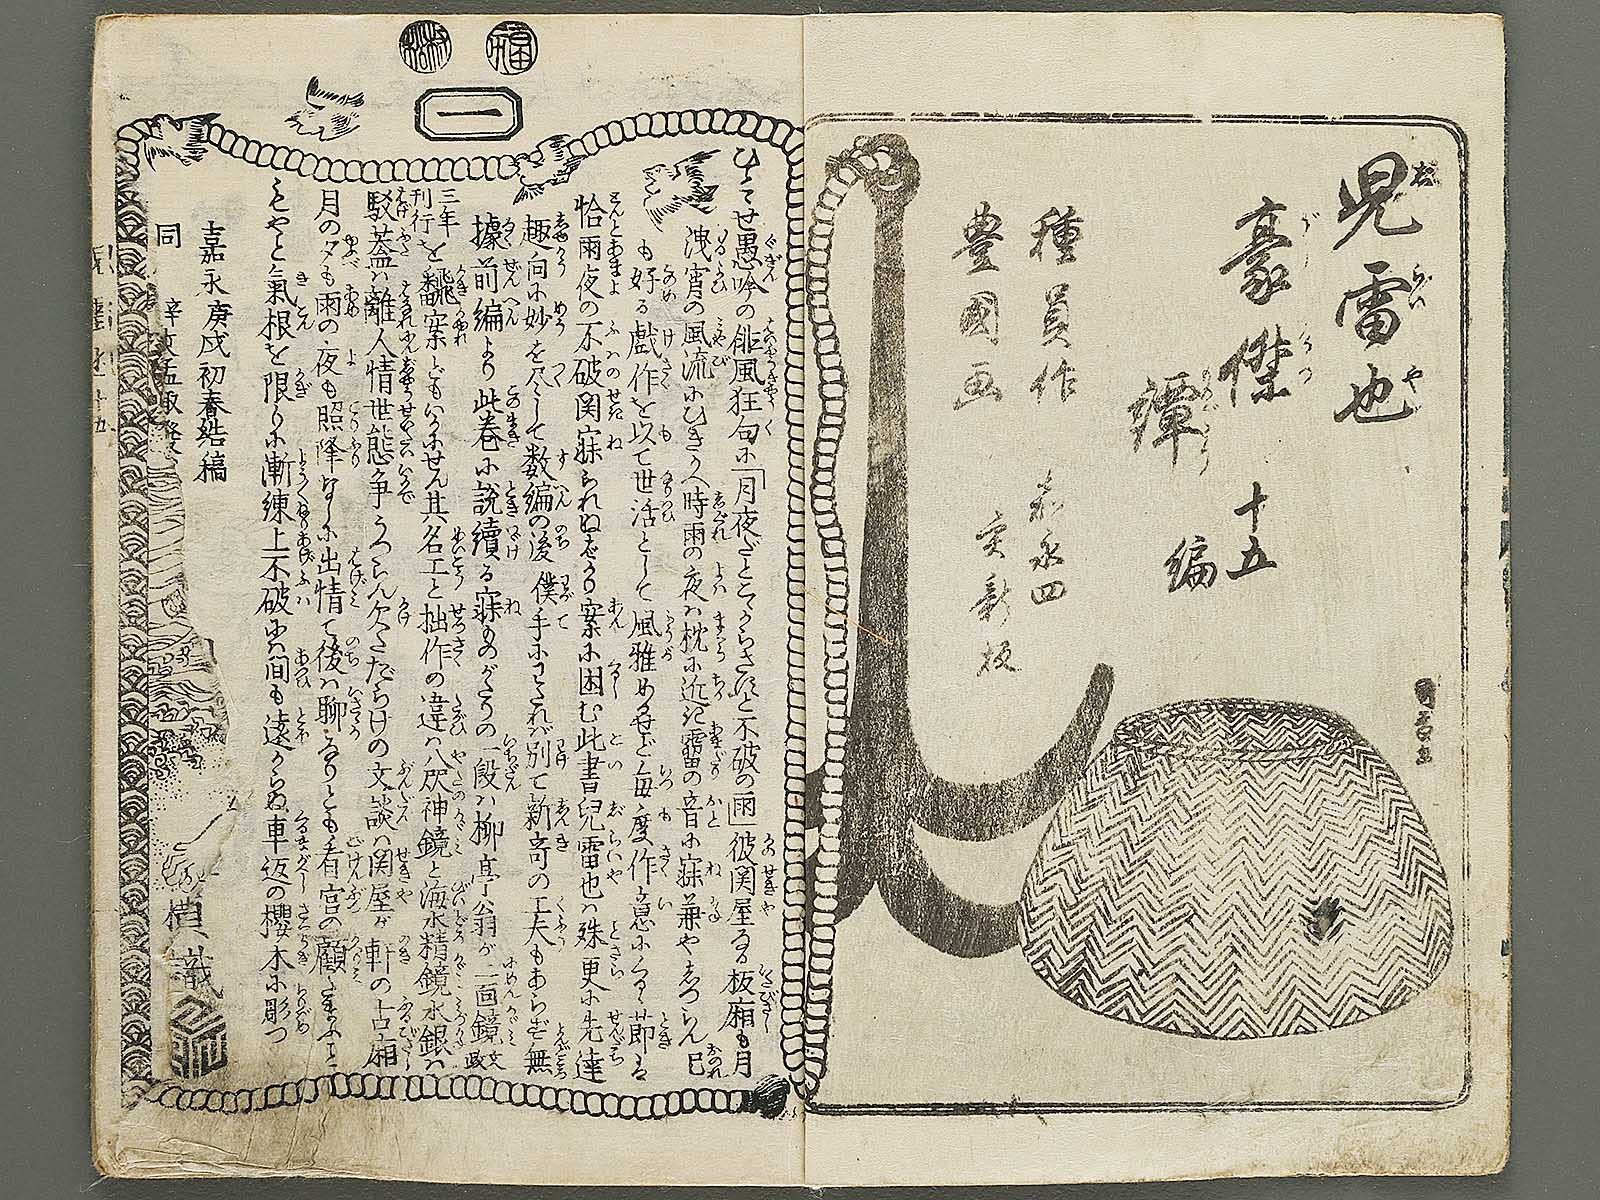 児雷也
豪傑
譚
十五
編
種員作
豊國画
嘉永四
亥新板
一
ひとせ愚吟の俳風狂句に「月夜だとてからさたに不破の雨」彼関屋なる板廂も月
洩宵の風流にひきかへ時雨の夜は枕に近き霤の音に寐兼やしつらん己
も好る戯作を以て世活として風雅めせど毎度作意にくるし節は
恰雨夜の不破関寐られぬまゝ案に困む此書児雷也は殊更に先達
趣向に妙を尽して数編の後僕手にわたれバ別て新奇の工夫もあらず無
據前編より此巻に説續る寐ものがたりの一段ハ柳亭翁が二面鏡文政
三年
刊行を飜案どもいかにせん其名工と拙作の違ハ八咫神鏡と海水精鏡水銀は
駁葢は離人情世態争うつらん欠ただらけの文談ハ関屋が軒の古廂
月の夕も雨の夜も照降なしに出情て後ハ聊なりとも看官の顧
もやと氣根を限りに漸練上不破には間も遠からぬ車返の櫻木に彫つ
嘉永庚戌初春結稿
同 辛亥孟陬發
種員識